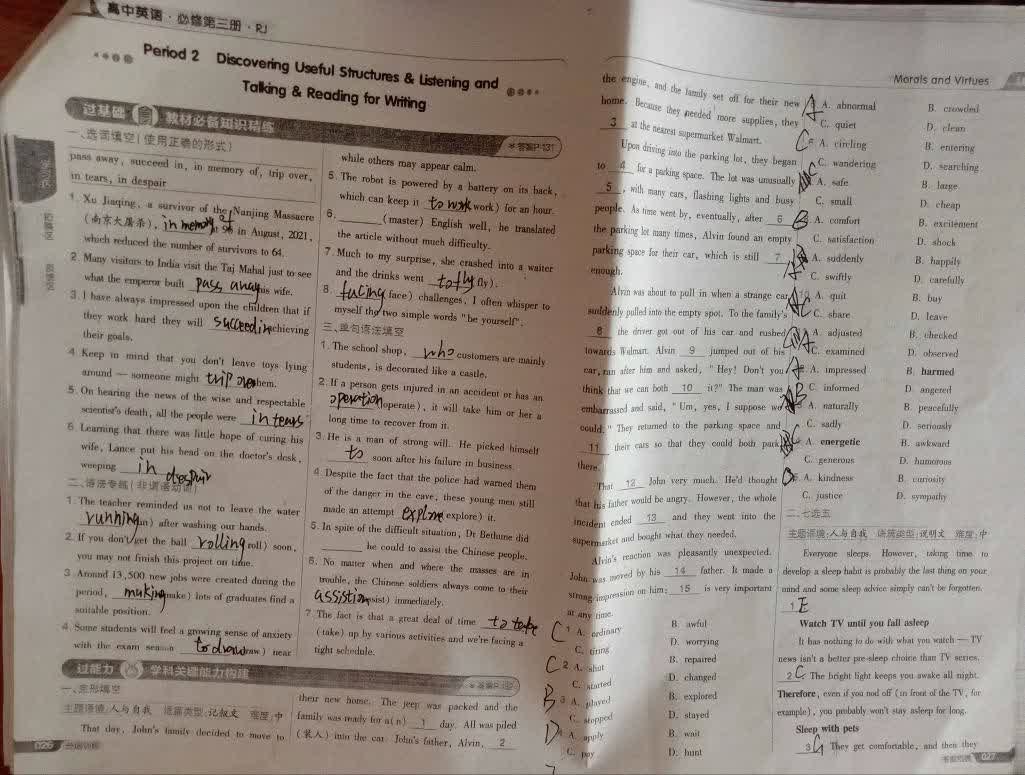 高中英语·必修第三册·RJ
Period 2 Discovering Useful Structures & Listening and
Talking & Reading for Writing
过基础 教材必备知识精练
*答案P-131
一、选词填空(使用正确的形式)
pass away, succeed in, in memory of, trip over,
in tears, in despair
1. Xu Jiaqing, a survivor of the Nanjing Massacre
(南京大屠杀), in memory of at 96 in August, 2021,
which reduced the number of survivors to 64.
2. Many visitors to India visit the Taj Mahal just to see
what the emperor built pass away his wife.
3. I have always impressed upon the children that if
they work hard they will succeed in achieving
their goals.
4. Keep in mind that you don't leave toys lying
around — someone might trip over them.
5. On hearing the news of the wise and respectable
scientist's death, all the people were in tears
6. Learning that there was little hope of curing his
wife, Lance put his head on the doctor's desk,
weeping in despair
二、语法专练(非谓语动词)
1. The teacher reminded us not to leave the water
running (run) after washing our hands.
2. If you don't get the ball rolling (roll) soon,
you may not finish this project on time.
3. Around 13,500 new jobs were created during the
period, making (make) lots of graduates find a
suitable position.
4. Some students will feel a growing sense of anxiety
with the exam season to draw (draw) near
while others may appear calm.
5. The robot is powered by a battery on its back,
which can keep it to work (work) for an hour.
6. ______ (master) English well, he translated
the article without much difficulty.
7. Much to my surprise, she crashed into a waiter
and the drinks went to fly (fly).
8. facing (face) challenges, I often whisper to
myself the two simple words "be yourself".
三、单句语法填空
1. The school shop, who customers are mainly
students, is decorated like a castle.
2. If a person gets injured in an accident or has an
operation (operate), it will take him or her a
long time to recover from it.
3. He is a man of strong will. He picked himself
to soon after his failure in business.
4. Despite the fact that the police had warned them
of the danger in the cave, these young men still
made an attempt explore (explore) it.
5. In spite of the difficult situation, Dr Bethune did
______ he could to assist the Chinese people.
6. No matter when and where the masses are in
trouble, the Chinese soldiers always come to their
assistion (assist) immediately.
7. The fact is that a great deal of time to take
(take) up by various activities and we're facing a
tight schedule.
过能力 学科关键能力构建
*答案P-132
一、完形填空
主题语境:人与自我 语篇类型:记叙文 难度:中
That day, John's family decided to move to
their new home. The jeep was packed and the
family was ready for a(n) 1 day. All was piled
(装入) into the car. John's father, Alvin, 2
026
Morals and Virtues
the engine, and the family set off for their new
home. Because they needed more supplies, they
3 at the nearest supermarket Walmart.
Upon driving into the parking lot, they began
to 4 for a parking space. The lot was unusually
5, with many cars, flashing lights and busy
people. As time went by, eventually, after 6
the parking lot many times, Alvin found an empty
parking space for their car, which is still 7
enough.
Alvin was about to pull in when a strange car
suddenly pulled into the empty spot. To the family's
8 the driver got out of his car and rushed
towards Walmart. Alvin 9 jumped out of his
car, ran after him and asked, "Hey! Don't you
think that we can both 10 it?" The man was
embarrassed and said, "Um, yes, I suppose we
could." They returned to the parking space and
11 their cars so that they could both park
there.
That 12 John very much. He'd thought
that his father would be angry. However, the whole
incident ended 13 and they went into the
supermarket and bought what they needed.
Alvin's reaction was pleasantly unexpected.
John was moved by his 14 father. It made a
strong impression on him: 15 is very important
at any time.
C 1 A. ordinary B. awful
C. tiring D. worrying
C 2 A. shut B. repaired
C. started D. changed
B 3 A. played B. explored
C. stopped D. stayed
D A. apply B. wait
C. pay D. hunt
A. abnormal B. crowded
C. quiet D. clean
A. circling B. entering
C. wandering D. searching
A. safe B. large
C. small D. cheap
A. comfort B. excitement
C. satisfaction D. shock
A. suddenly B. happily
C. swiftly D. carefully
A. quit B. buy
C. share D. leave
A. adjusted B. checked
C. examined D. observed
A. impressed B. harmed
C. informed D. angered
A. naturally B. peacefully
C. sadly D. seriously
A. energetic B. awkward
C. generous D. humorous
A. kindness B. curiosity
C. justice D. sympathy
二、七选五
主题语境:人与自我 语篇类型:说明文 难度:中
Everyone sleeps. However, taking time to
develop a sleep habit is probably the last thing on your
mind and some sleep advice simply can't be forgotten.
1 E
Watch TV until you fall asleep
It has nothing to do with what you watch — TV
news isn't a better pre-sleep choice than TV series.
2 C The bright light keeps you awake all night.
Therefore, even if you nod off (in front of the TV, for
example), you probably won't stay asleep for long.
Sleep with pets
3 G They get comfortable, and then they
027